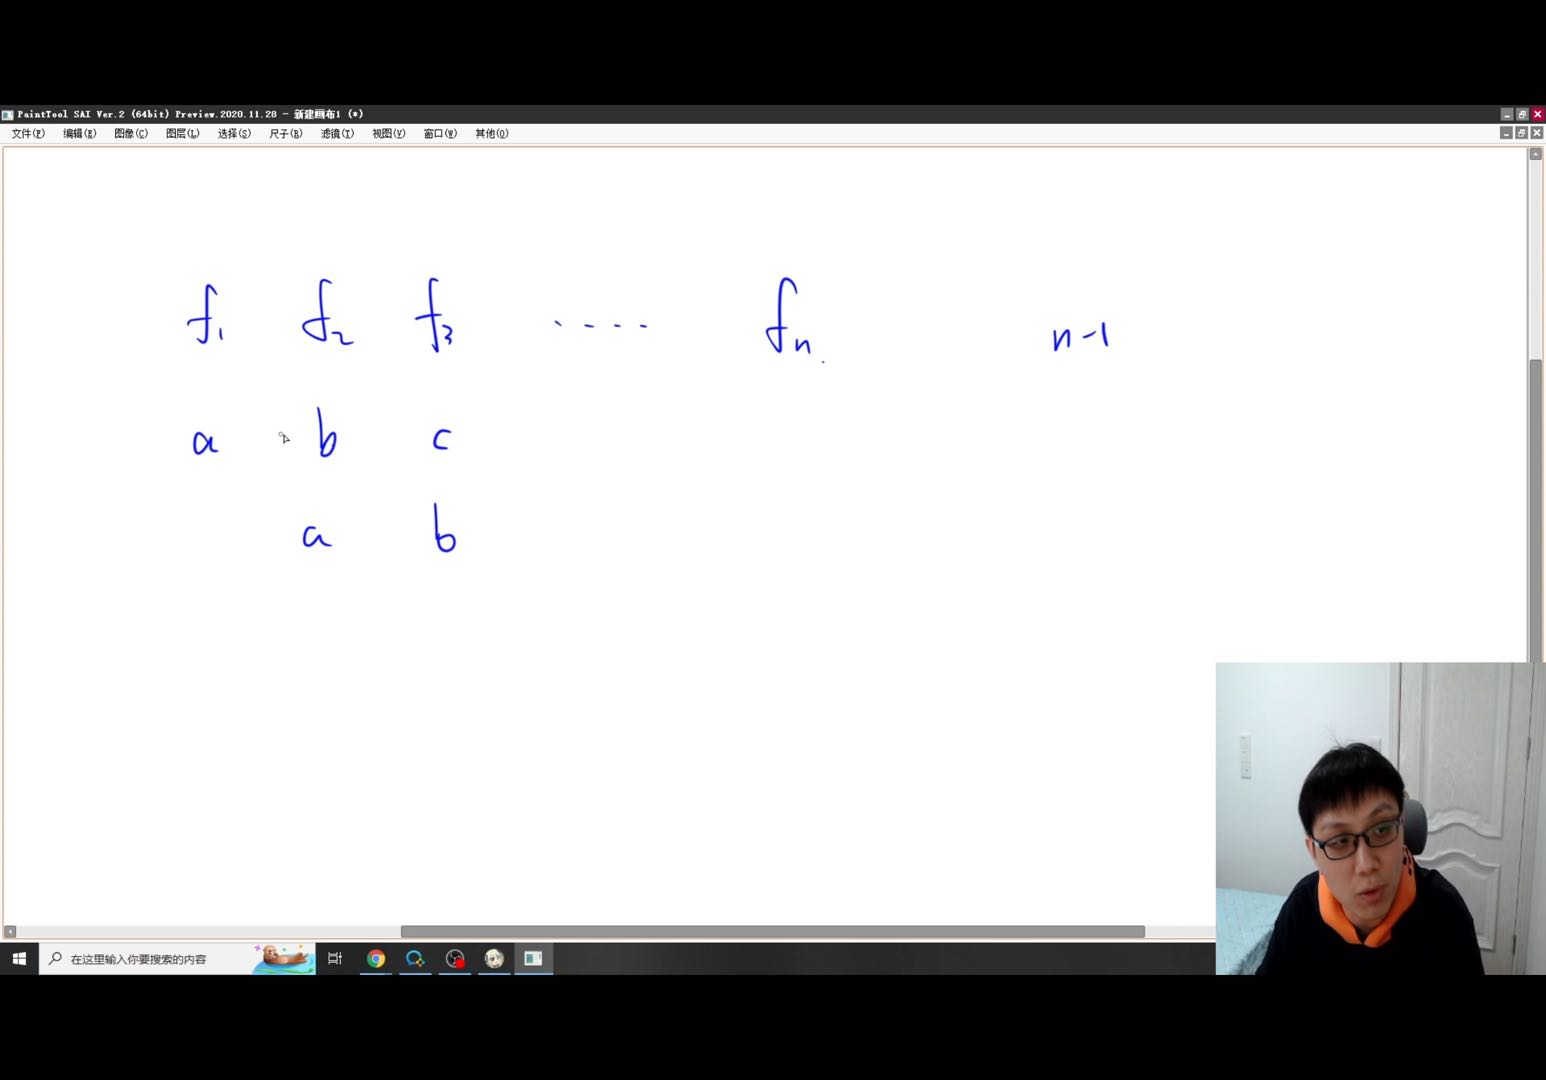 PaintTool SAI Ver.2 (64bit) Preview.2020.11.28 - 新建画布1 (*)
文件(F) 编辑(E) 图像(C) 图层(L) 选择(S) 尺子(R) 滤镜(T) 视图(V) 窗口(W) 其他(O)
f₁ f₂ f₃ ---- fₙ. n-1
a b c
a b
在这里输入你要搜索的内容